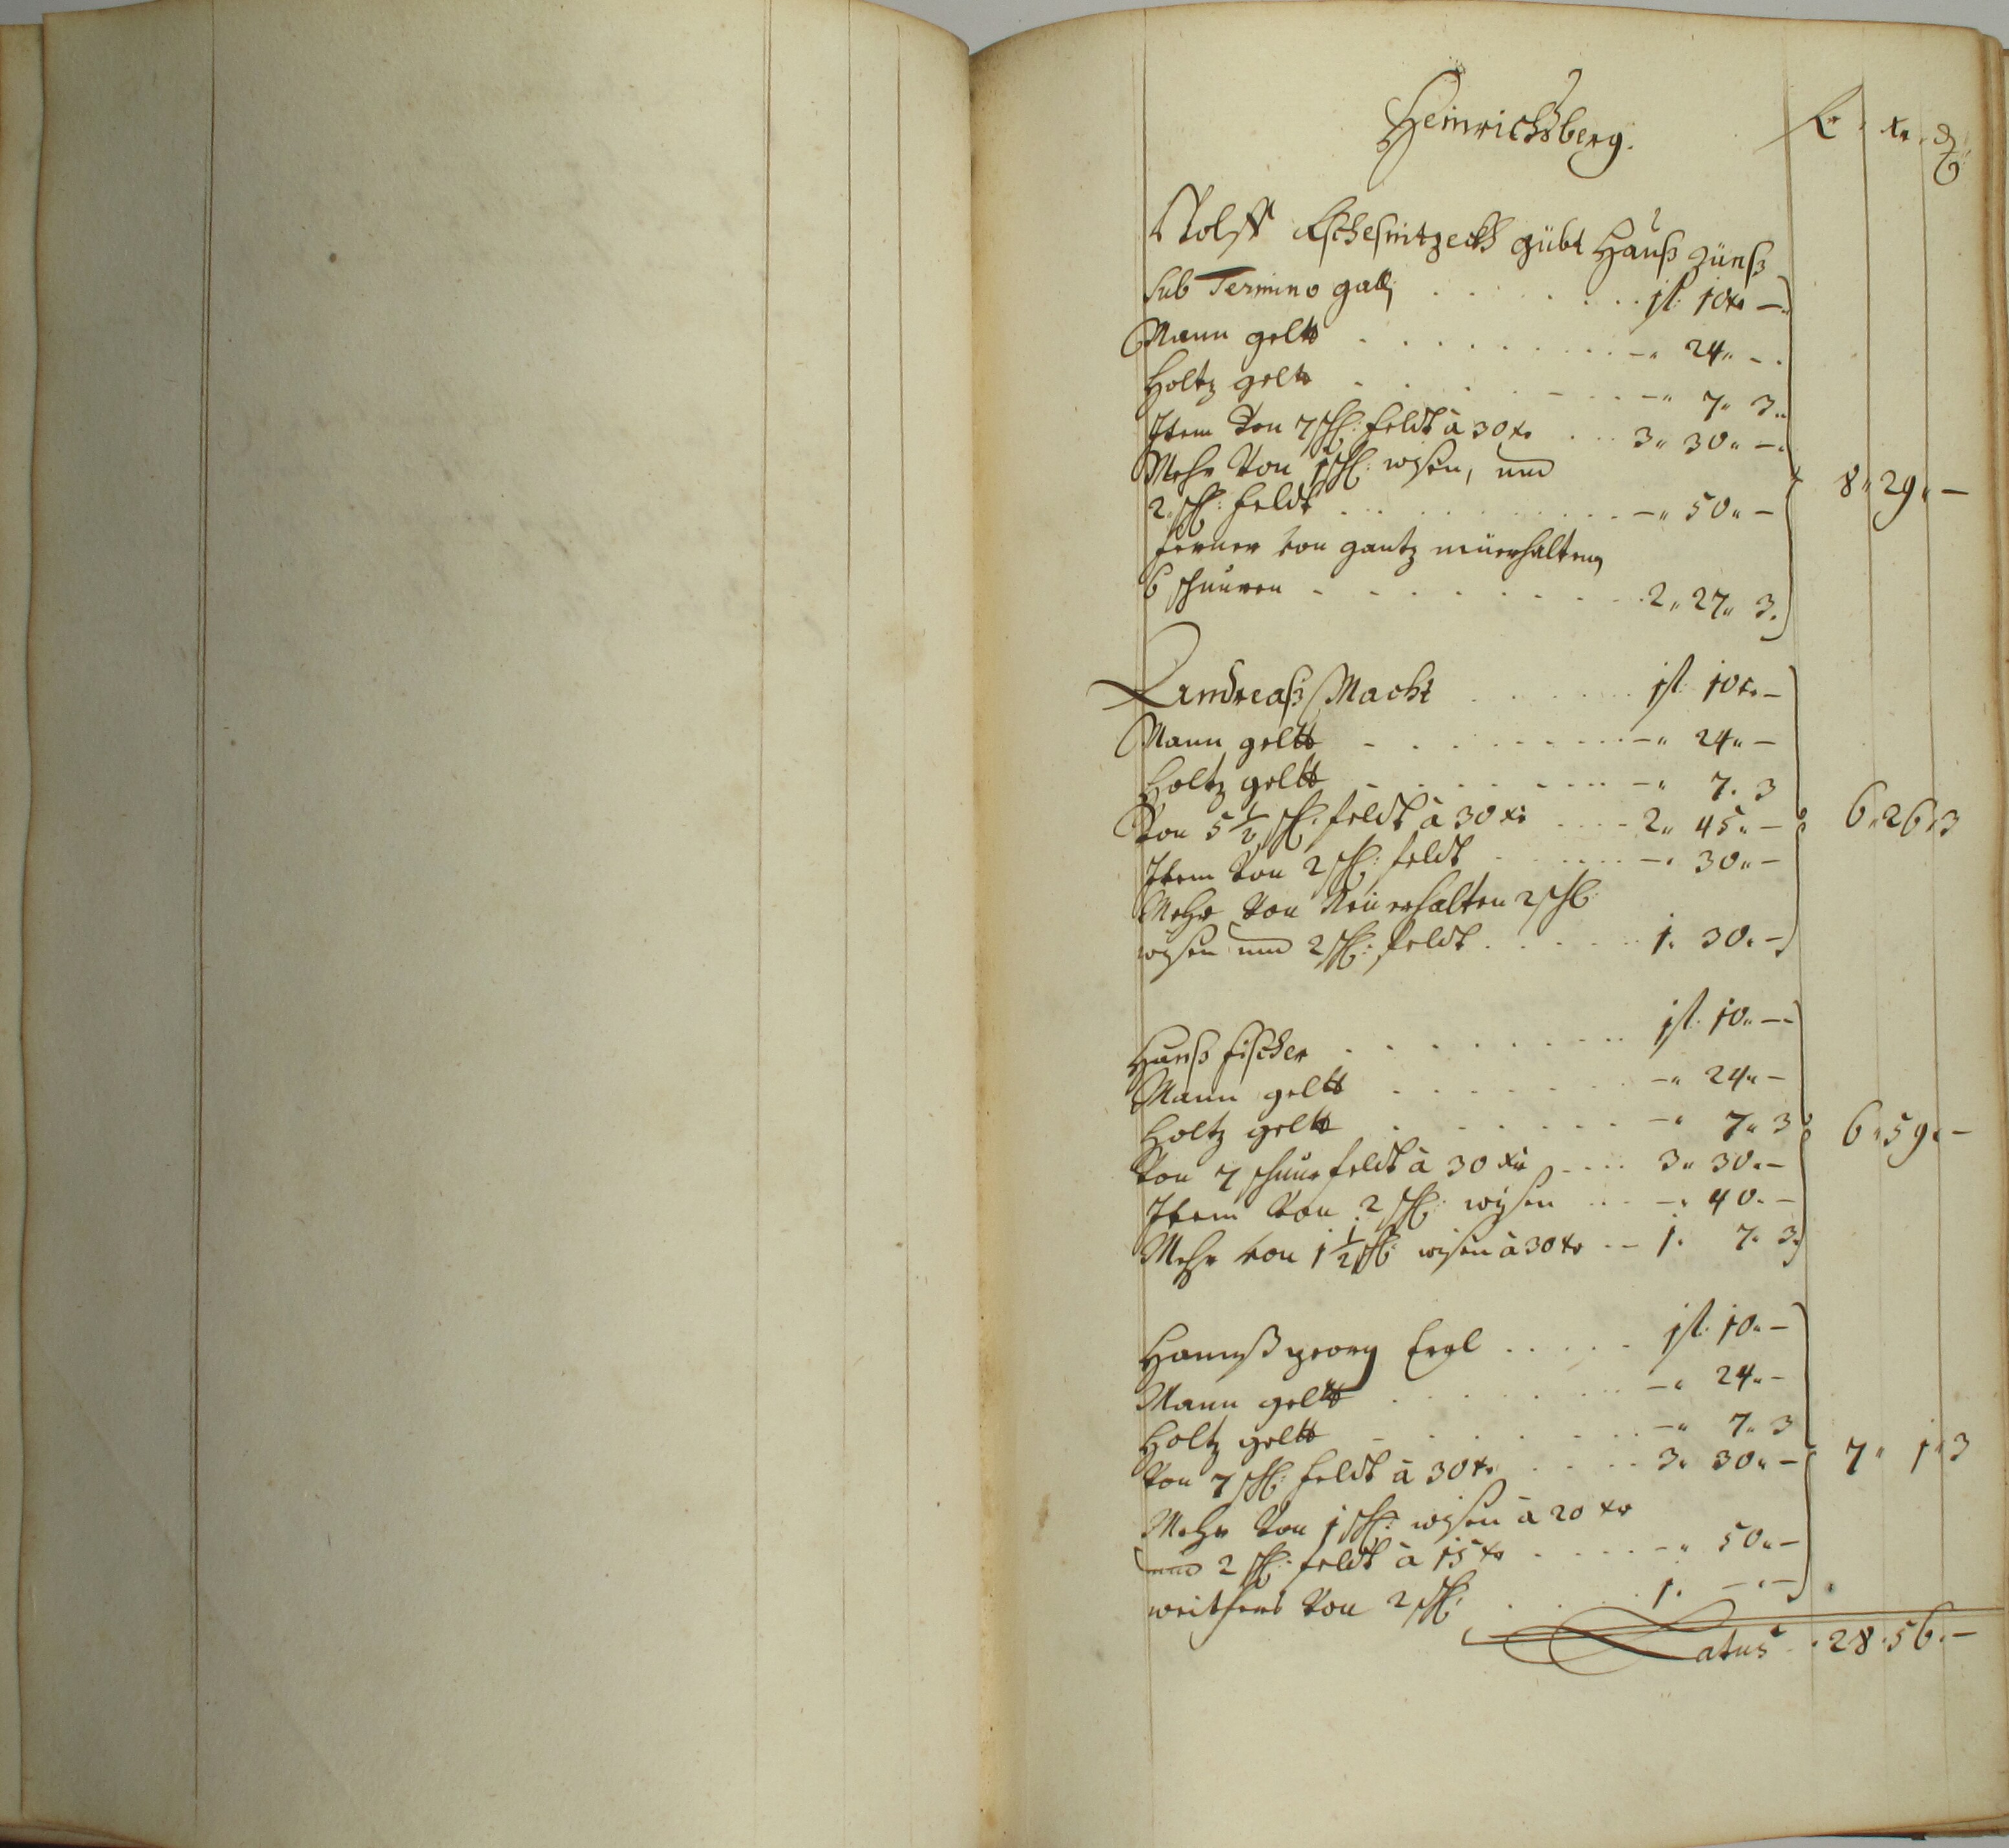 Heinrichsberg. f. xr. ₰
Wolff Tschesnitzeckh gübt Hauß Zünß
Sub Termino galli . . . . . . . 1 fl: 10 xr —
Mann geltt . . . . . . . . . . —„ 24„ —
Holtz gelt . . . . . . . . —„ 7„ 3„
Item Von 7 sch: feldt à 30 xr . . . 3„ 30„ —
Mehr Von 1 sch: wisen, und
2 sch: feldt . . . . . . . . . —„ 50„ — 8„ 29„ —
ferner von gantz neüerhalten
6 schnuren . . . . . . . . 2„ 27„ 3.
Andreaß Macht . . . . . . 1 fl: 10 xr —
Mann geltt . . . . . . . . . —„ 24„ —
Holtz geltt . . . . . . . . —„ 7. 3
Von 5 1/2 sch: feldt à 30 xr . . . . 2„ 45„ — 6„ 26„ 3
Item Von 2 sch: feldt . . . . . . —. 30„ —
Mehr Von Neüerhalten 2 sch:
wisen und 2 sch: feldt . . . . . . 1. 30. —
Hanß fischer . . . . . . . . . 1 fl. 10„ —
Mann geltt . . . . . . . —„ 24„ —
Holtz geltt . . . . . . . —„ 7„ 3 6„ 59„ —
Von 7 schnur feldt à 30 xr . . . . 3„ 30„ —
Item Von 2 sch: wisen . . . —„ 40. —
Mehr von 1 1/2 sch: wisen à 30 xr . . — 1. 7. 3.
Hannß georg Erel . . . . . 1 fl. 10„ —
Mann geltt . . . . . . . . —„ 24„ —
Holtz geltt . . . . . . . —„ 7„ 3
Von 7 sch: feldt à 30 xr . . . . . 3„ 30„ — 7„ 1„ 3
Mehr Von 1 sch: wisen à 20 xr
und 2 sch: feldt à 15 xr . . . . . —„ 50„ —
weithers Von 2 sch: . . . . 1. —„ —
Latus . 28. 56. —